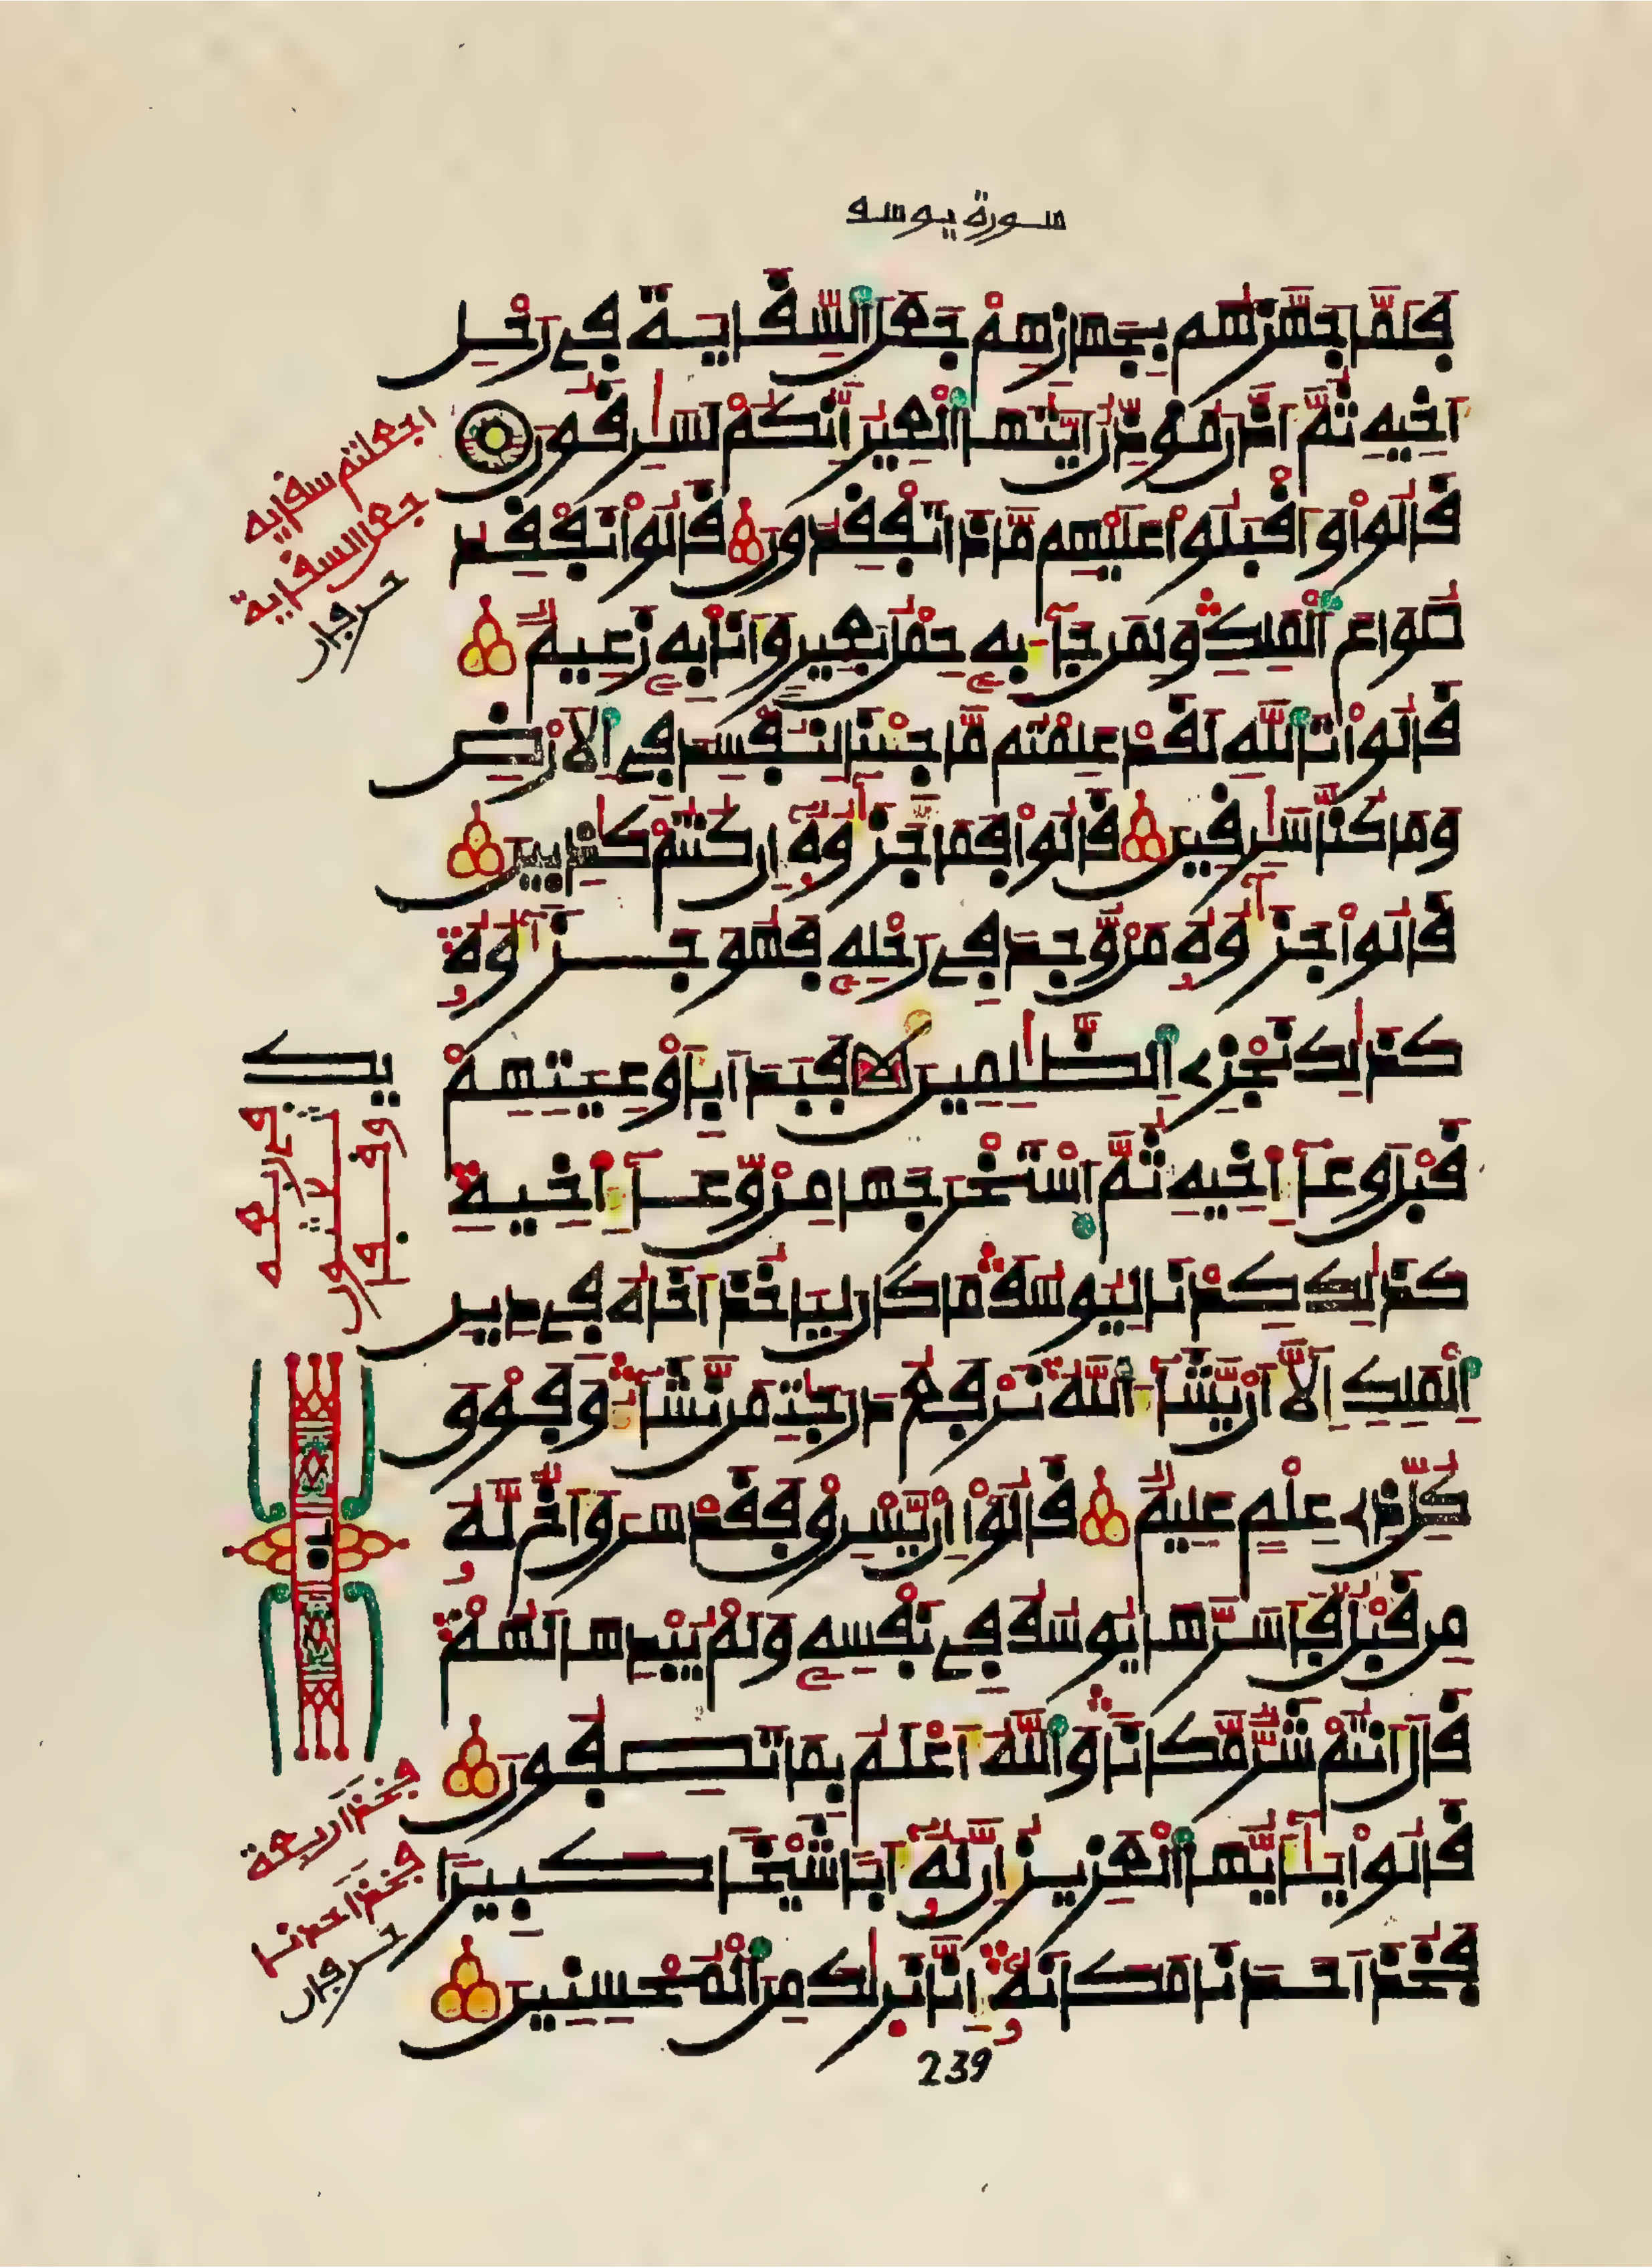 سورة يوسف
فَلَمَّا جَهَّزَهُم بِجَهَازِهِمْ جَعَلَ اَلسِّقَايَةَ فِي رَحْلِ
أَخِيهِ ثُمَّ أَذَّنَ مُوَذِّنٌ اَيَّتُهَا اَلْعِيرُ إِنَّكُمْ لَسَٰرِقُونَ
قَالُواْ وَأَقْبَلُواْ عَلَيْهِم مَّاذَا تَفْقِدُونَ قَالُواْ نَفْقِدُ
صُوَاعَ اَلْمَلِكِ وَلِمَن جَآءَ بِهِ حِمْلُ بَعِيرٍ وَأَنَا بِهِ زَعِيمٌ
قَالُواْ تَاللَّهِ لَقَدْ عَلِمْتُم مَّا جِئْنَا لِنُفْسِدَ فِي اِلَارْضِ
وَمَا كُنَّا سَٰرِقِينَ قَالُواْ فَمَا جَزَٰٓؤُهُ إِن كُنتُمْ كَٰذِبِينَ
قَالُواْ جَزَٰٓؤُهُ مَنْ وُّجِدَ فِي رَحْلِهِ فَهُوَ جَزَٰٓؤُهُ
كَذَٰلِكَ نَجْزِي اِلظَّٰلِمِينَ فَبَدَأَ بِأَوْعِيَتِهِمْ
قَبْلَ وِعَآءِ اخِيهِ ثُمَّ اَسْتَخْرَجَهَا مِنْ وِّعَآءِ اخِيهِ
كَذَٰلِكَ كِدْنَا لِيُوسُفَ مَا كَانَ لِيَاخُذَ أَخَاهُ فِي دِينِ
اِلْمَلِكِ إِلَّا أَنْ يَّشَآءَ اَللَّهُ نَرْفَعُ دَرَجَٰتِ مَن نَّشَآءُ وَفَوْقَ
كُلِّ ذِي عِلْمٍ عَلِيمٌ قَالُواْ إِنْ يَّسْرِقْ فَقَدْ سَرَقَ أَخٌ لَّهُ
مِن قَبْلُ فَأَسَرَّهَا يُوسُفُ فِي نَفْسِهِ وَلَمْ يُبْدِهَا لَهُمْ
قَالَ أَنتُمْ شَرٌّ مَّكَانًا وَاللَّهُ أَعْلَمُ بِمَا تَصِفُونَ
قَالُواْ يَٰٓأَيُّهَا اَلْعَزِيزُ إِنَّ لَهُ أَبًا شَيْخًا كَبِيرًا
فَخُذْ أَحَدَنَا مَكَانَهُ إِنَّا نَرَىٰكَ مِنَ اَلْمُحْسِنِينَ
239
اجعلتم سقايه
جعل السقاية
حرفان
يك
فخذ اربعة
فخذ احدنا
حرفان